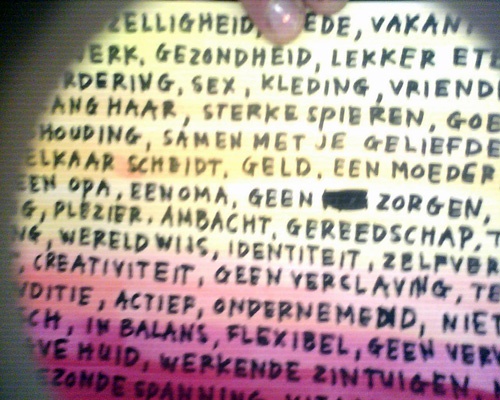 ZELLIGHEID, EDE, VAKAN
ERK, GEZONDHEID, LEKKER ETE
RDERING, SEX, KLEDING, VRIEND
ANG HAAR, STERKE SPIEREN, GOE
HOUDING, SAMEN MET JE GELIEFDE
ELKAAR SCHEIDT, GELD, EEN MOEDER
EEN OPA, EEN OMA, GEEN ZORGEN,
G, PLEZIER, AMBACHT, GEREEDSCHAP, T
NG, WERELD WIJS, IDENTITEIT, ZELFVER
, CREATIVITEIT, GEEN VERCLAVING, TE
NDITIE, ACTIEF, ONDERNEMEND, NIET
CH, IN BALANS, FLEXIBEL, GEEN VERV
VE HUID, WERKENDE ZINTUIGEN,
EZONDE SPANNING,